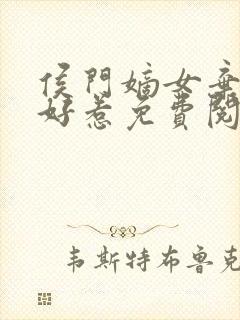 侯門嫡女童
好惹免費閱
韦斯特布鲁克